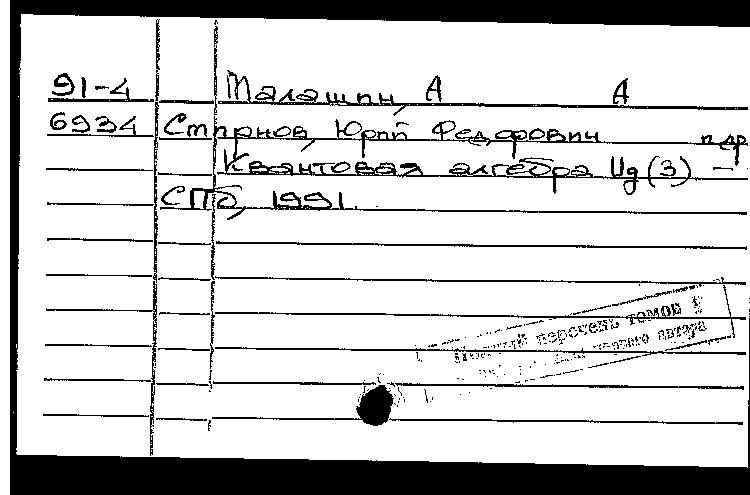 91-4 Малашин, А А
6934 Смирнов, Юрий Федорович и др
Квантовая алгебра Uq(3) –
СПб, 1991.
перечень томов
первого автора